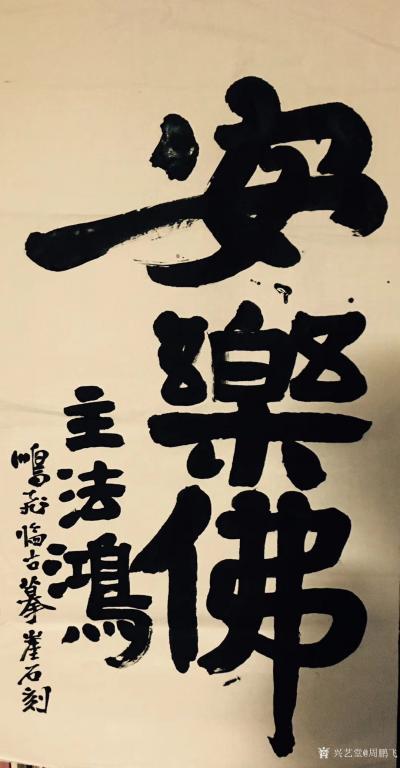 安樂佛
主法鴻
鵬飛臨古摹崖石刻
兴艺堂@周鹏飞